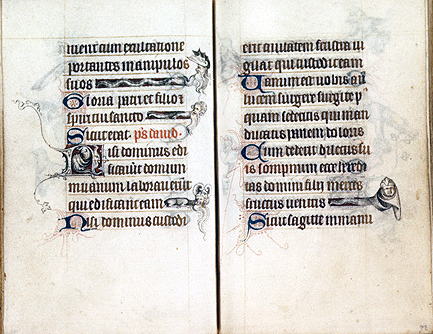 uenient cum exultatione
portantes manipulos
suos
Gloria patri et filio et
spiritui sancto
Sicut erat. ps dauid.
Nisi dominus edi
ficauerit domum
in uanum laborauerunt
qui edificant eam
Nisi dominus custodi
erit ciuitatem frustra ui
gilat qui custodit eam
Vanum est uobis an̄
lucem surgere surgite p
quam sederitis qui man
ducatis panem doloris
Cum dederit dilectis su
is sompnum ecce heredi
tas domini filii merces
fructus uentris
Sicut sagitte in manu